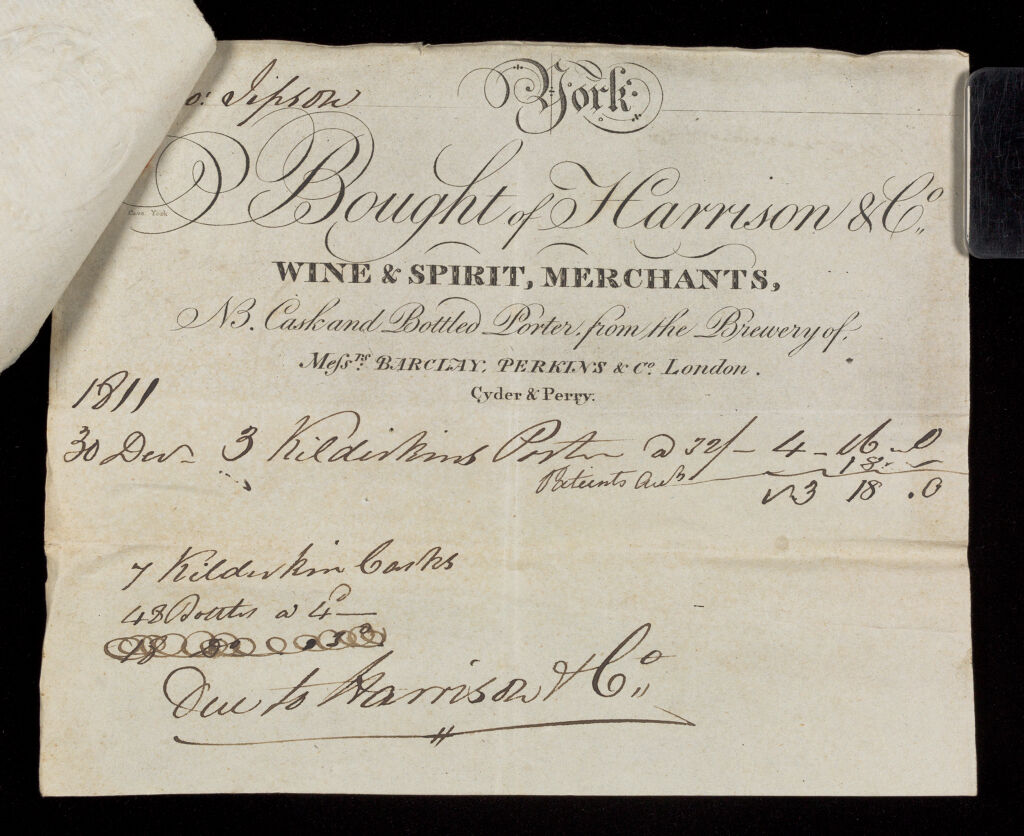 York
o: Jepson
Bought of Harrison & Co.,
Cave York
WINE & SPIRIT, MERCHANTS,
NB. Cask and Bottled Porter, from the Brewery of,
Messrs. BARCLAY, PERKINS & Co. London.
Cyder & Perry.
1811
30 Decr 3 Kilderkins Porter a 32/ - 4 - 16 - 0
18
3 18 . 0
7 Kilderkin Casks
48 Bottles a 4d
Due to Harrison & Co.,,